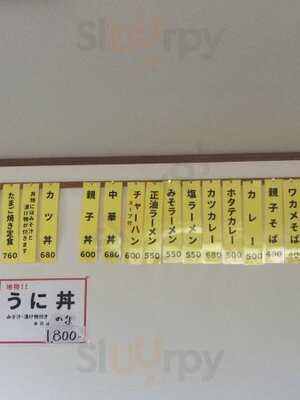 Sluurpy
たまご焼き定食
760
丼物にはみそ汁と
漬け物が付きます
カツ丼
680
親子丼
600
中華丼
680
チャーハン
スープ付
600
正油ラーメン
550
みそラーメン
550
塩ラーメン
550
カツカレー
680
ホタテカレー
500
カレー
500
親子そば
ワカメそ
地物!!
うに丼
みそ汁・漬け物付き
1,800-
Sluurpy